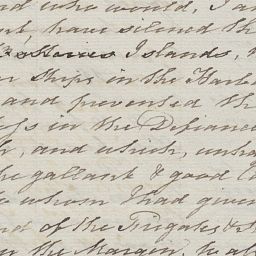 who would, I a
have silenced th
Islands, a
ships in the Harb
and prevented th
in the Defiance
and which, unha
he gallant & good C
to whom I had given
nd of the Frigates &
the Margin, to al